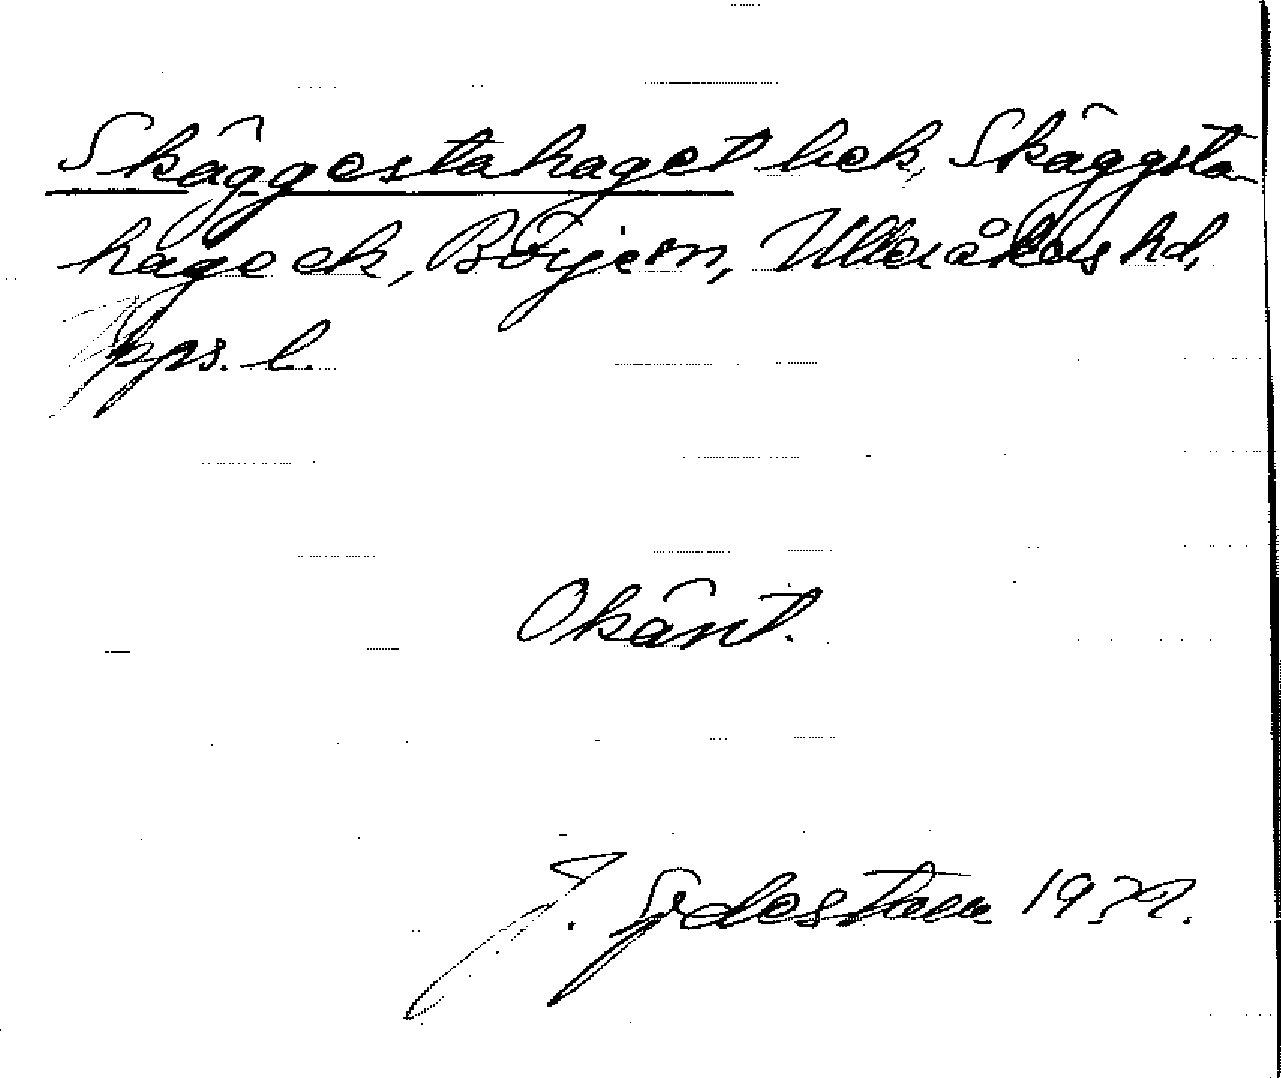 Skäggestahaget bek, Skäggsta-
hage ek, Börjem, Ulleråkers hd,
Upps. l.
Okänt.
J. Sydestam 1932.